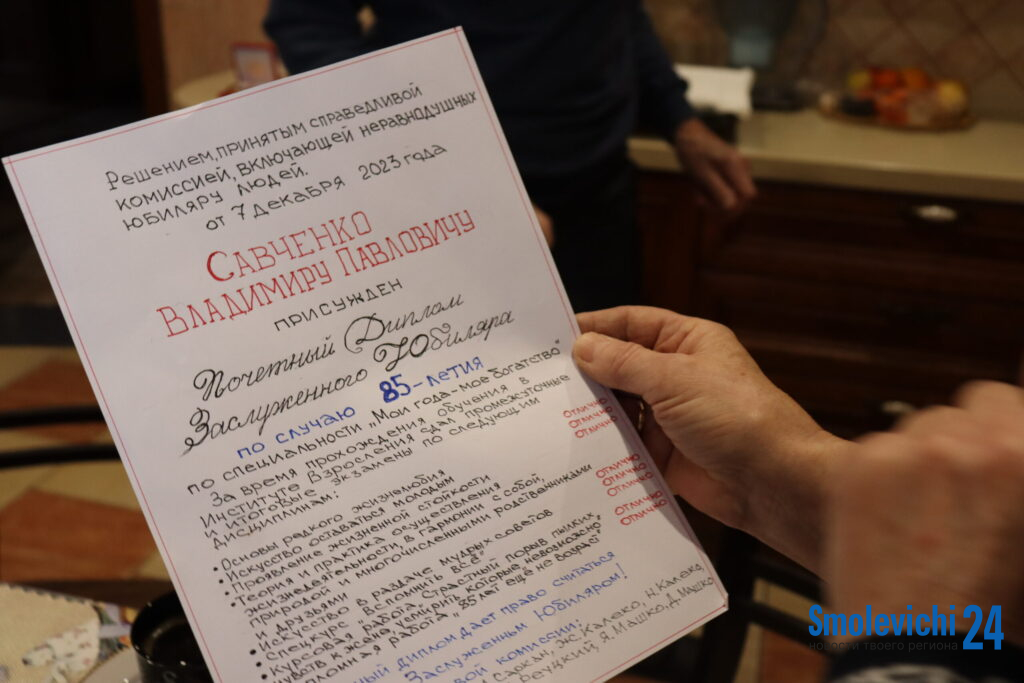 Решением, принятым справедливой
комиссией, включающей неравнодушных
юбиляру людей.
от 7 декабря 2023 года
Савченко
Владимиру Павловичу
присужден
Почетный Диплом
Заслуженного Юбиляра
по случаю 85-летия
по специальности „Мои года-мое богатство"
За время прохождения обучения в
Институте Взросления сдал промежуточные
и итоговые экзамены по следующим
дисциплинам:
• Основы редкого жизнелюбия отлично
• Искусство оставаться молодым отлично
• Проявление жизненной стойкости отлично
• Теория и практика осуществления
жизнедеятельности в гармонии с собой,
природой и многочисленными родственниками
и друзьями отлично
• Искусство в раздаче мудрых советов отлично
• Спецкурс „Вспомнить всё" отлично
• Курсовая работа „Страстный порыв пылких
чувств к жене, усмирить которые невозможно" отлично
• Дипломная работа „85 лет ещё не возраст" отлично
диплом даёт право считаться
Заслуженным Юбиляром!
комиссии:
Калеко, Н. Калеко,
Я. Машко, Д. Машко
Smolevichi 24
новости твоего региона